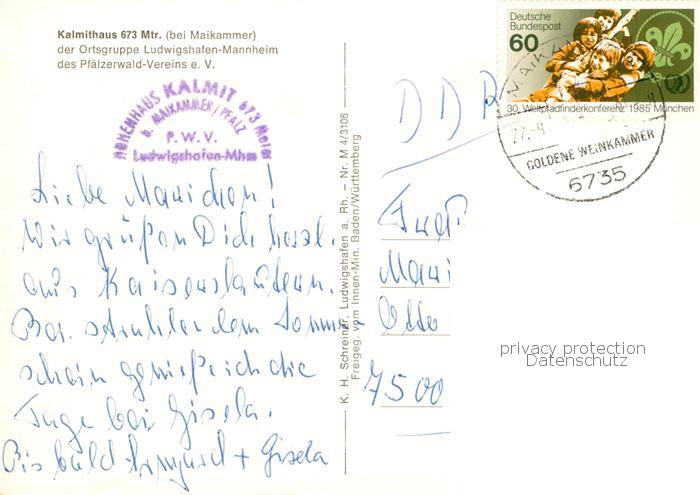 Kalmithaus 673 Mtr. (bei Maikammer)
der Ortsgruppe Ludwigshafen-Mannheim
des Pfälzerwald-Vereins e. V.
HÖHENHAUS KALMIT 673 Meter
b. MAIKAMMER/PFALZ
P. W. V.
Ludwigshafen-Mhm
Liebe Marichen!
Wir grüßen Dich herzl.
aus Kaiserslautern.
Bei strahlendem Sonnen
schein genieße ich die
Tage bei Gisela.
Bis bald Irmgard + Gisela
K. H. Schreiner, Ludwigshafen a. Rh. – Nr. M 4/3106
Freigeg. vom Innen-Min. Baden/Württemberg
Deutsche
Bundespost
60
30. Weltpfadfinderkonferenz 1985 München
GOLDENE WEINKAMMER
6735
DDR
Frau
Mari
Otto
7500
privacy protection
Datenschutz